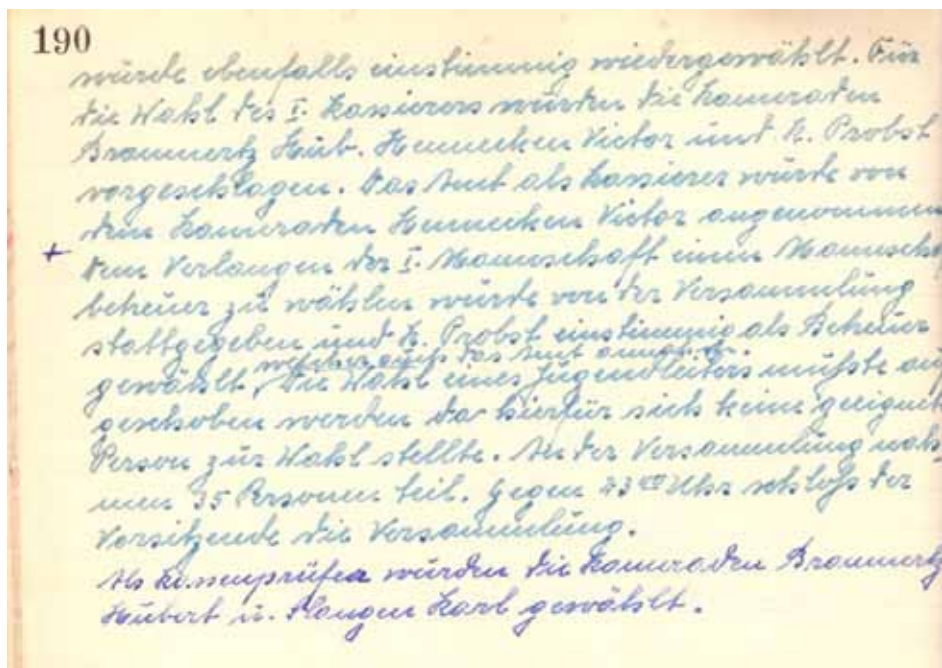 190
wurde ebenfalls einstimmig wiedergewählt. Für
die Wahl des I. Kassierers wurden die Kameraden
Brammertz Hub. Hennecken Victor und K. Probst
vorgeschlagen. Das Amt als Kassierer wurde von
dem Kameraden Hennecken Victor angenommen
+ Dem Verlangen der I. Mannschaft einen Mannsch
betreuer zu wählen wurde von der Versammlung
stattgegeben und K. Probst einstimmig als Betreuer
welcher auch das Amt
gewählt, Die Wahl eines Jugendleiters mußte auf
geschoben werden da hierfür sich keine geeignet
Person zur Wahl stellte. An der Versammlung nah
men 35 Personen teil. Gegen 23 00 Uhr schloß der
Vorsitzende die Versammlung.
Als Kassenprüfer wurden die Kameraden Brammertz
Hubert u. Karl gewählt.